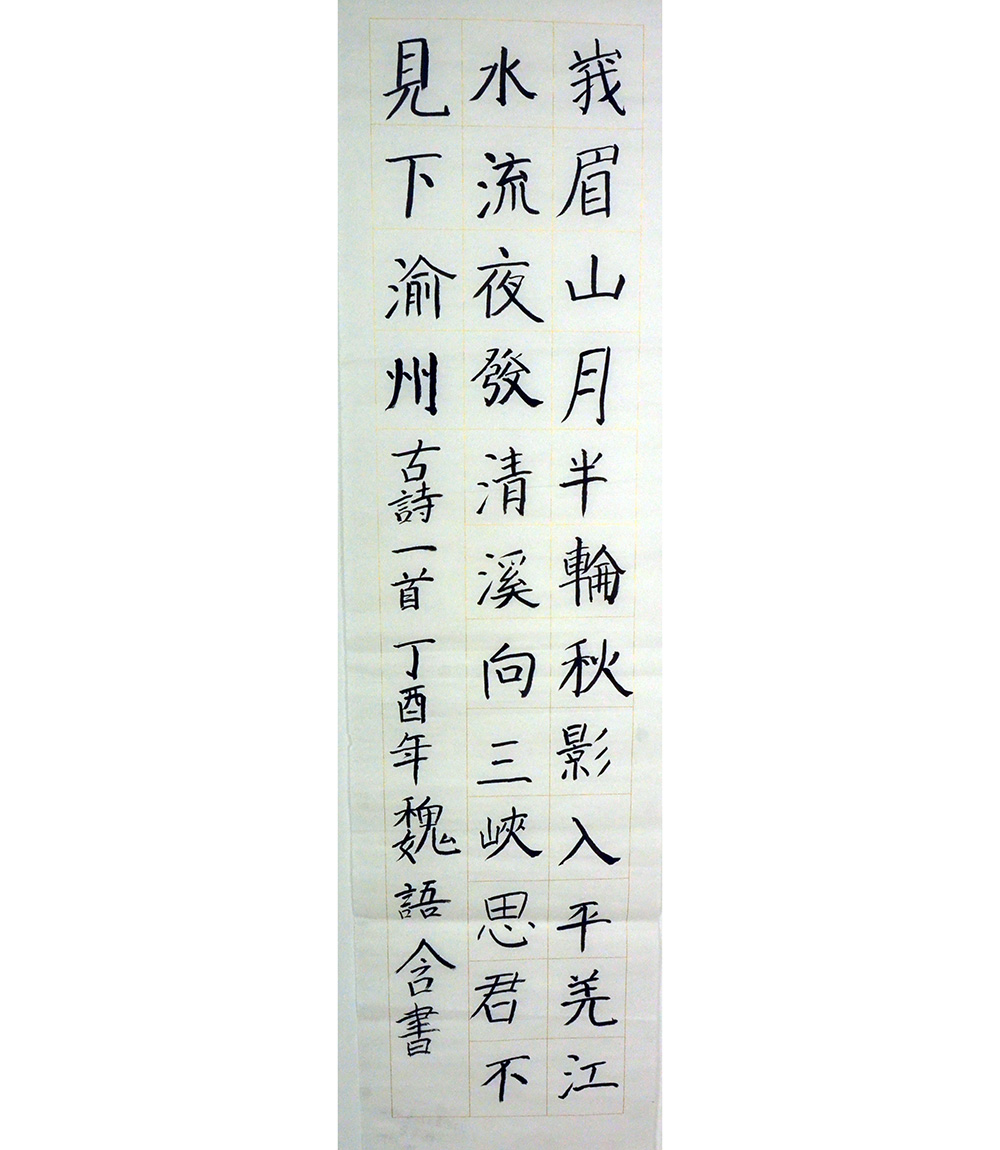 莪眉山月半輪秋影入平羌江
水流夜發清溪向三峽思君不
見下渝州古詩一首丁酉年魏語含書